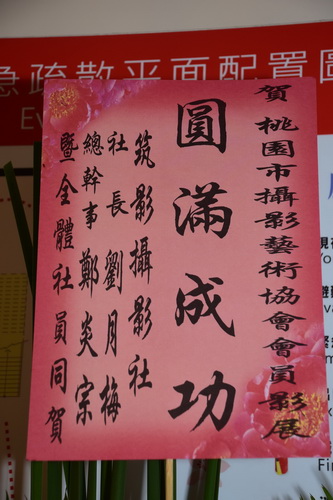 急疏散平面配置圖
Ev
賀 桃園市攝影藝術協會會員影展
圓滿成功
筑影攝影社
社長 劉月梅
總幹事 鄭炎宗
暨全體社員同賀